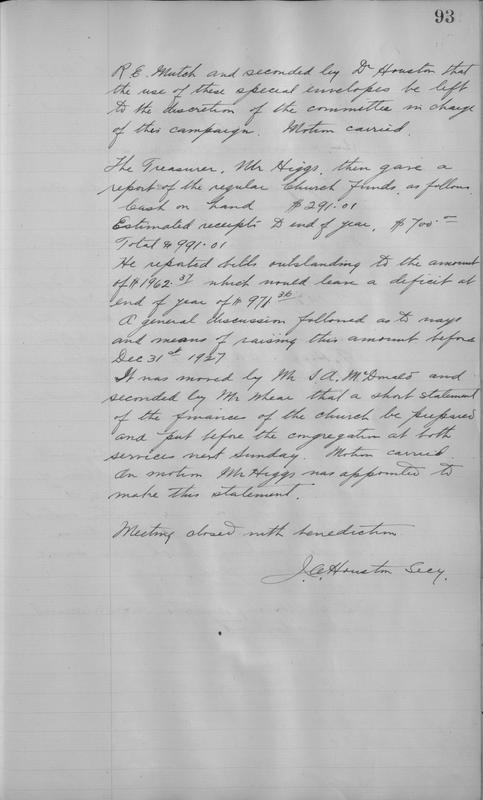 93
R. E. Mutch and seconded by Dr Houston that
the use of these special envelopes be left
to the discretion of the committee in charge
of this campaign. Motion carried.
The Treasurer, Mr Higgs, then gave a
report of the regular Church Funds, as follows
Cash on hand $291.01
Estimated receipts to end of year, $700 —
Total $991.01
He reported bills outstanding to the amount
of $1962.37 which would leave a deficit at
end of year of $971.36
A general discussion followed as to ways
and means of raising this amount before
Dec 31st 1927
It was moved by Mr J. A. McDonald and
seconded by Mr Whear that a short statement
of the finances of the church be prepared
and put before the congregation at both
services next Sunday. Motion carried.
On motion Mr Higgs was appointed to
make this statement.
Meeting closed with benediction.
J. A. Houston Secy.